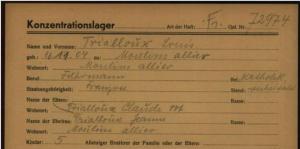 Konzentrationslager Art der Haft: Fr. Gef. Nr. 72974
Name und Vorname: Trialloux Louis
geb.: 4.11.04 zu: Moulins allier
Wohnort: Moulins allier
Beruf: Rel.: Kathol.
Staatsangehörigkeit: Stand:
Name der Eltern: Trialloux Claude Rasse:
Wohnort:
Name der Ehefrau: Trialloux Jeanne
Wohnort: Moulins allier
Kinder: 5 Alleiniger Ernährer der Familie oder der Eltern: